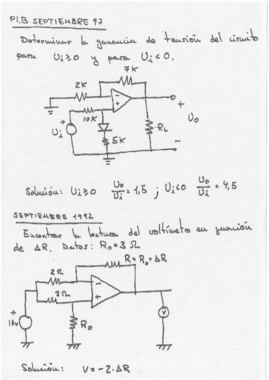 P.I.B SEPTIEMBRE 92
Determinar la ganancia de tensión del circuito
para Ui≥0 y para Ui<0.
7K
2K
-
+
10K
Ui
5K
RL
+
Uo
-
Solución: Ui≥0 Uo/Ui = 1,5 ; Ui<0 Uo/Ui = 4,5
SEPTIEMBRE 1992
Encontrar la lectura del voltímetro en función
de ΔR. Datos: Ro=3Ω
R=Ro+ΔR
2Ω
2Ω
-
+
10v
Ro
V
Solución: V=-2·ΔR